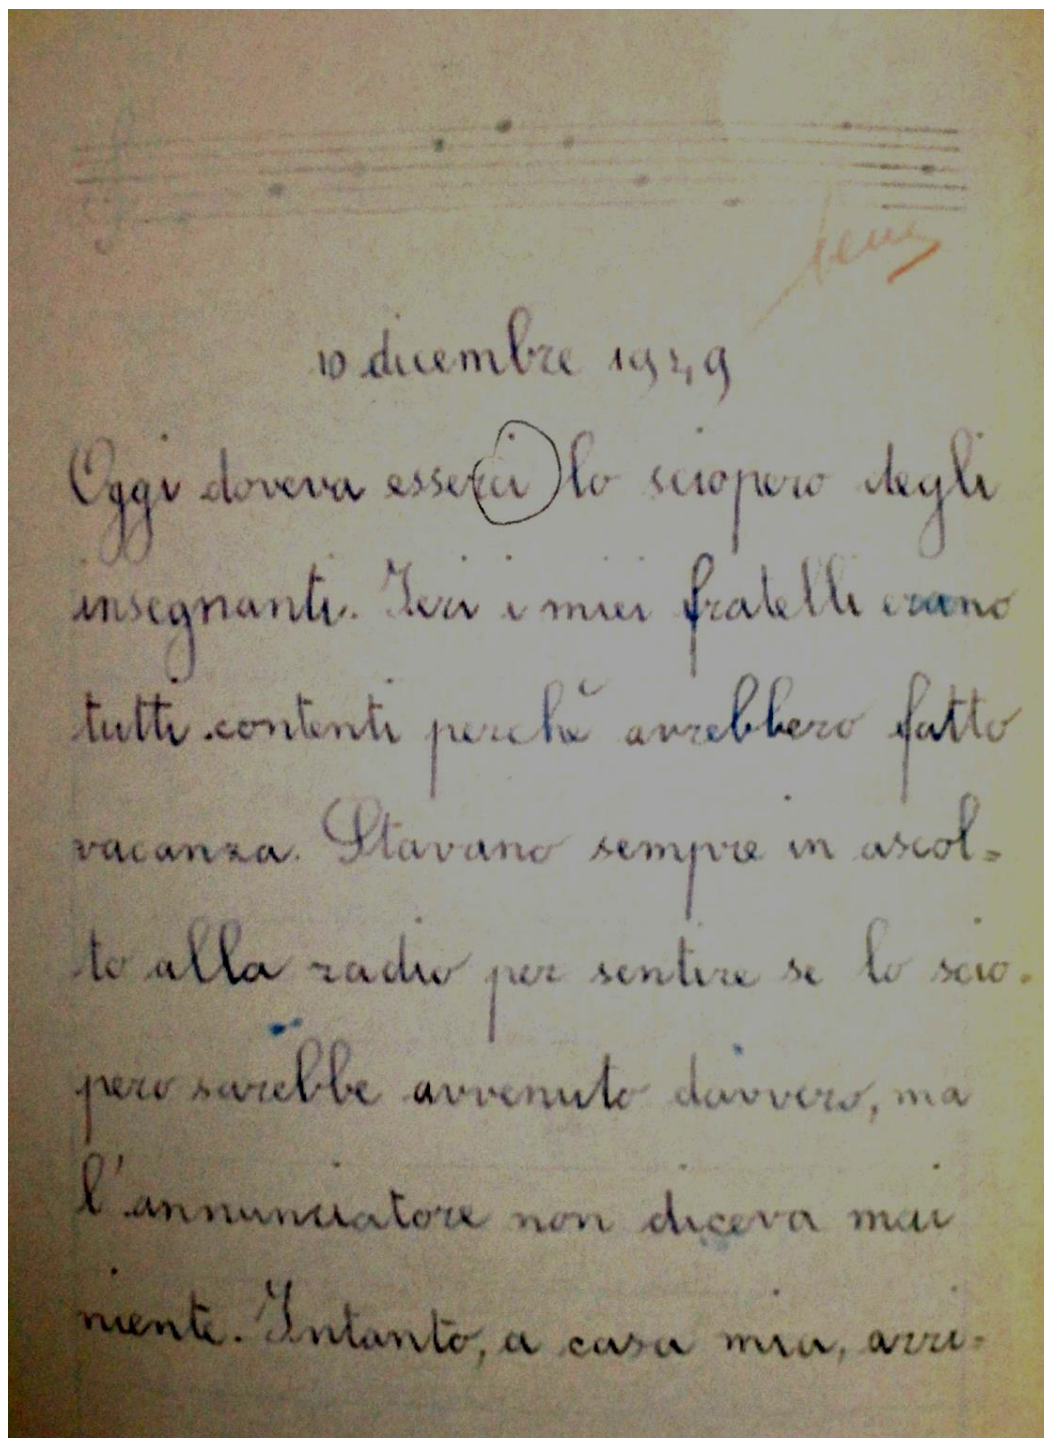 bene
10 dicembre 1949
Oggi doveva esserci lo sciopero degli
insegnanti. Ieri i miei fratelli erano
tutti contenti perchè avrebbero fatto
vacanza. Stavano sempre in ascol=
to alla radio per sentire se lo scio=
pero sarebbe avvenuto davvero, ma
l'annunciatore non diceva mai
niente. Intanto, a casa mia, arri=